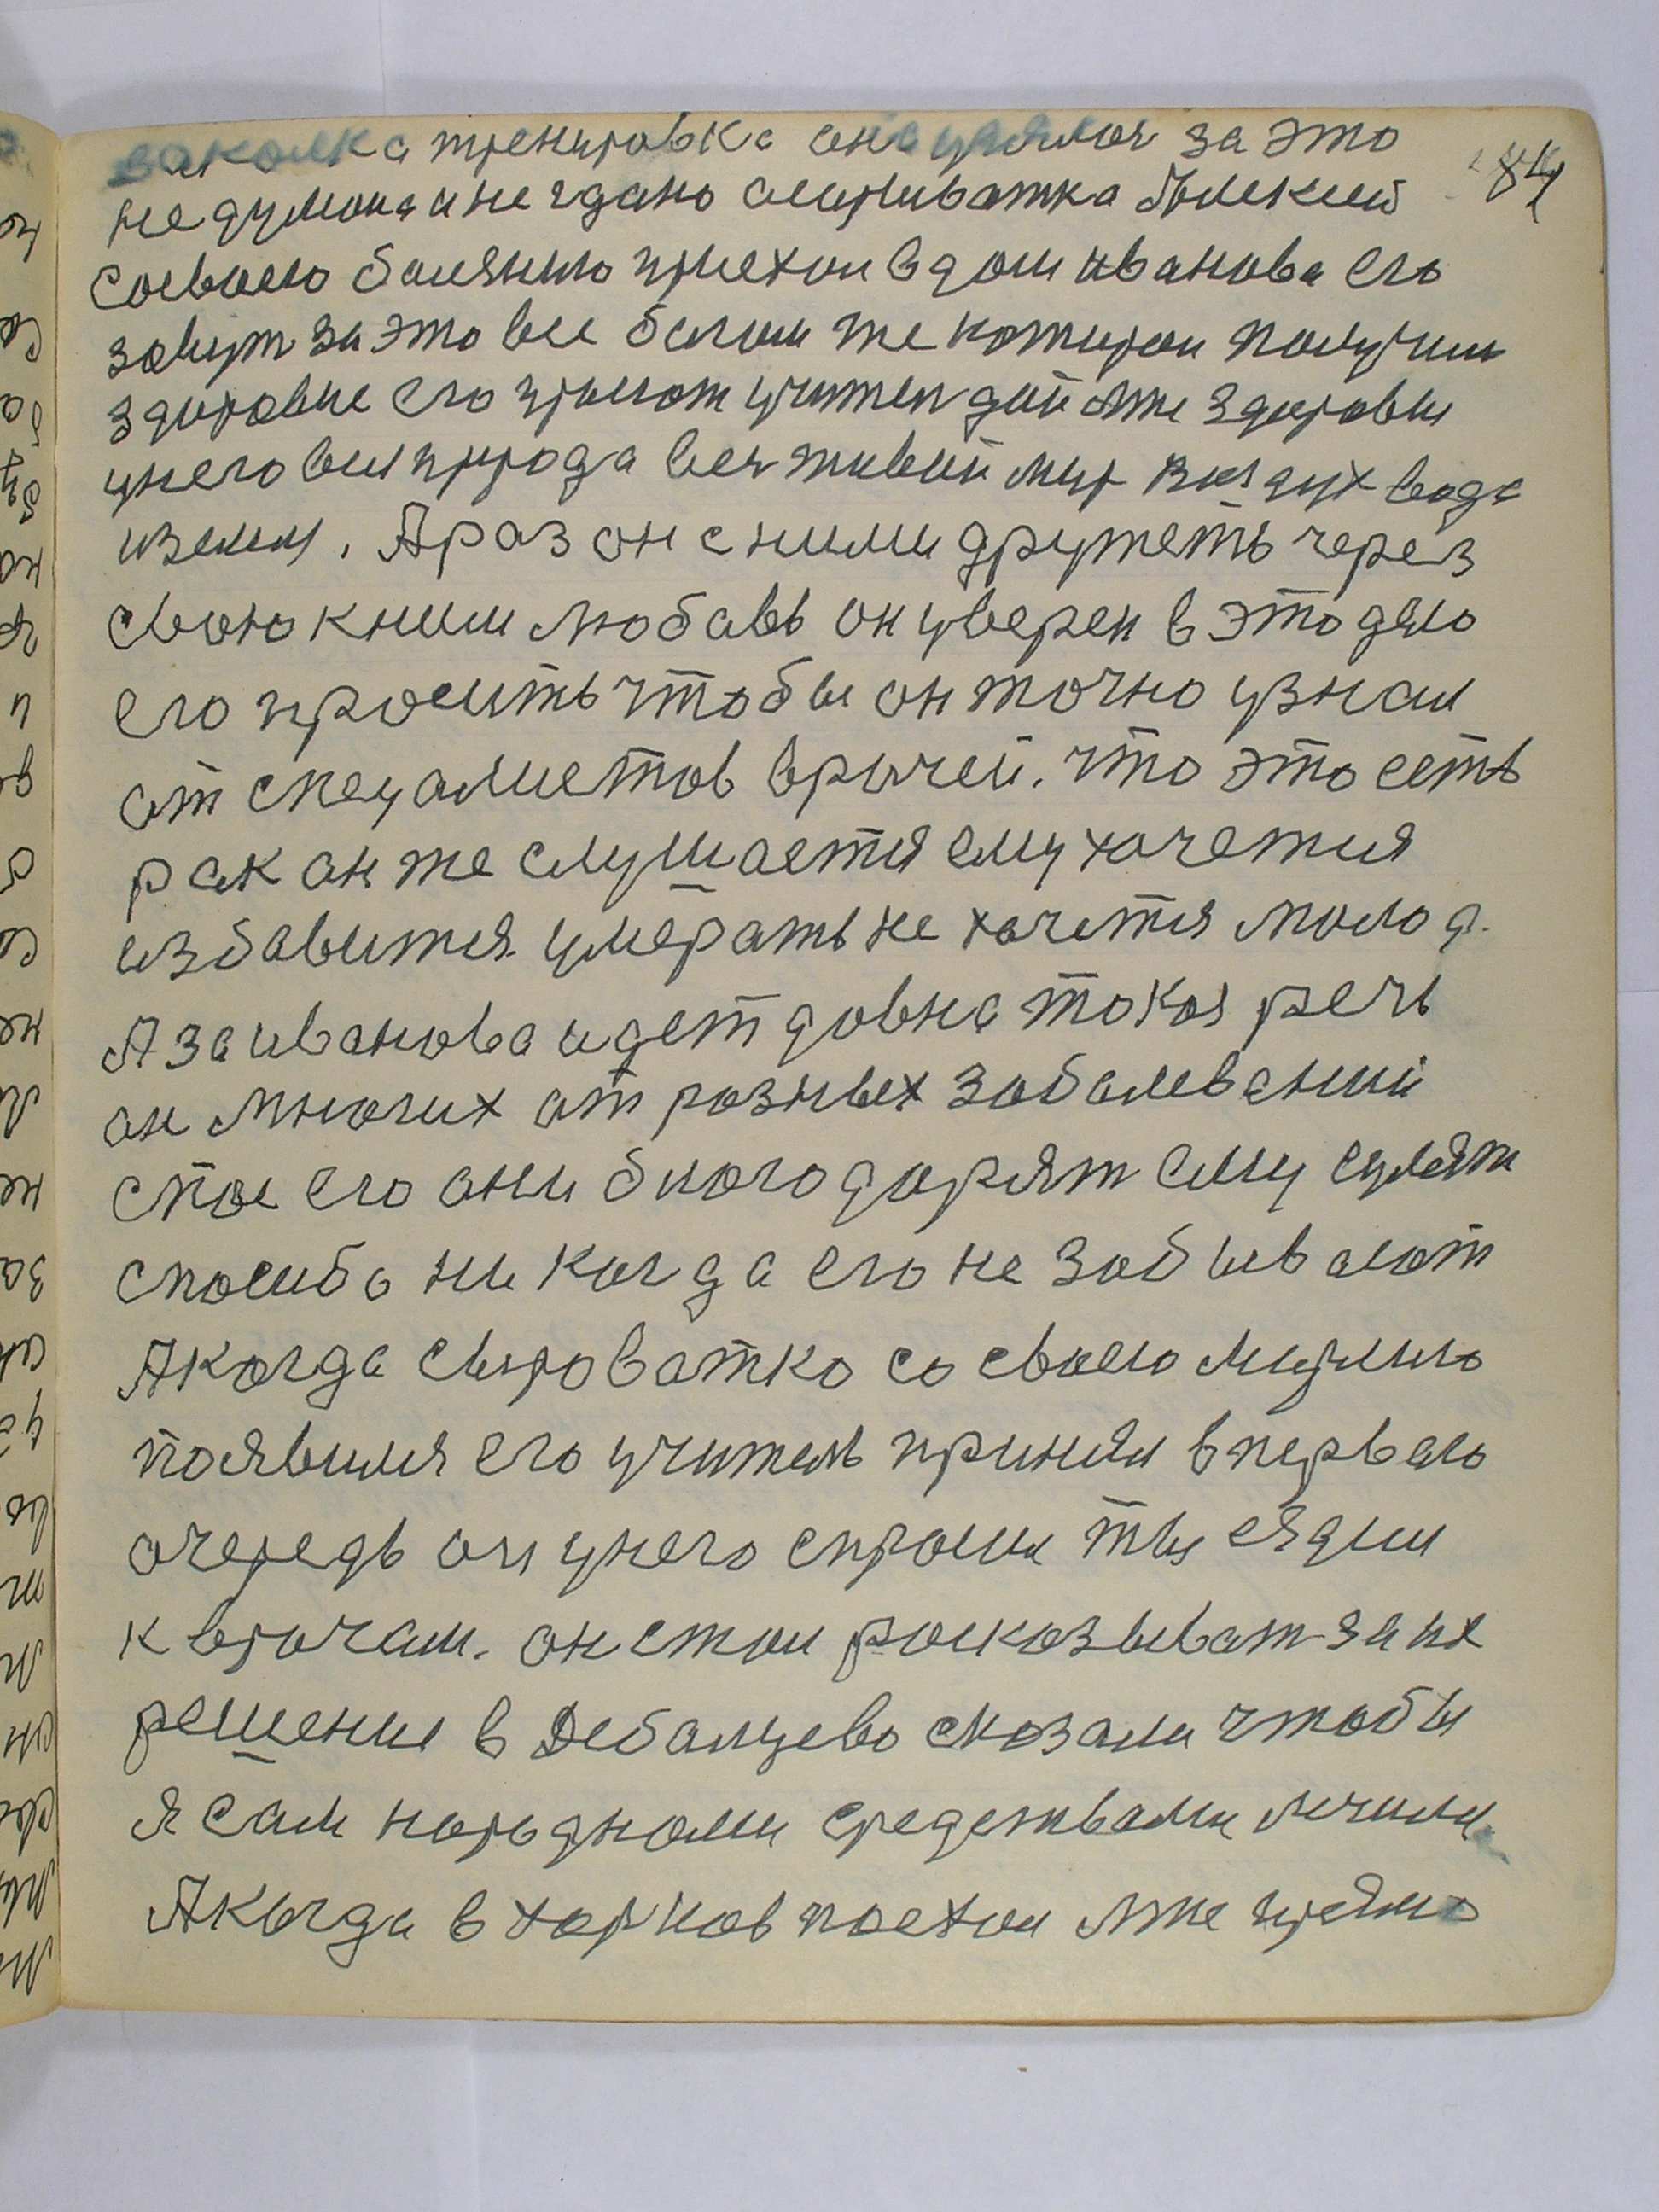 закалка тренировка она за это 84
не думона и не гдано сыриватка Алексей
сосвоею болезнию приехои в дом иванова его
зовут за это все богом те которои получии
здоровие его просют учител дай мне здоровия
унего вся природа весь живой мир воздух вода
иземля. А раз он сними дружеть через
свою кними любавь он уверен в это дело
его просить чтобы он точно узнал
от спецалистов врачей. что это есть
рак он же слушается ему хочетися
избавится умерать не хочется молод.
А за иванова идет довна токоя речь
он многих от розных заболеваний
спас его они благодарят ему сулят
спосибо ни когда его не забывают
А когда сыроватко со своею мамою
появился его учитель принял в первою
очередь он унего спросил ты ездил
к врачам. он стал росказыват за их
решение в Дебалцево сказали чтобы
я сам народноми средствами лечили
А когда в харков поехол мне прямо